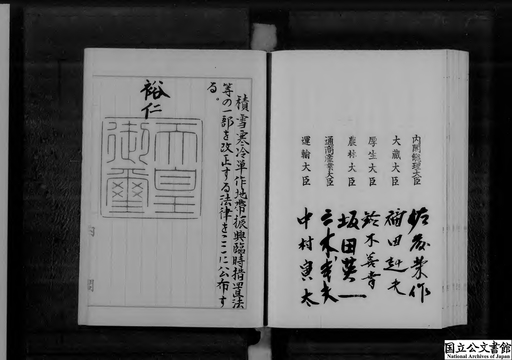 内閣総理大臣 佐藤榮作
大蔵大臣 福田赳夫
厚生大臣 鈴木善幸
農林大臣 坂田英一
通商産業大臣 三木武夫
運輸大臣 中村寅太
積雪寒冷単作地帯振興臨時措置法
等の一部を改正する法律をここに公布す
る。
裕仁
天皇
御璽
国立公文書館
National Archives of Japan